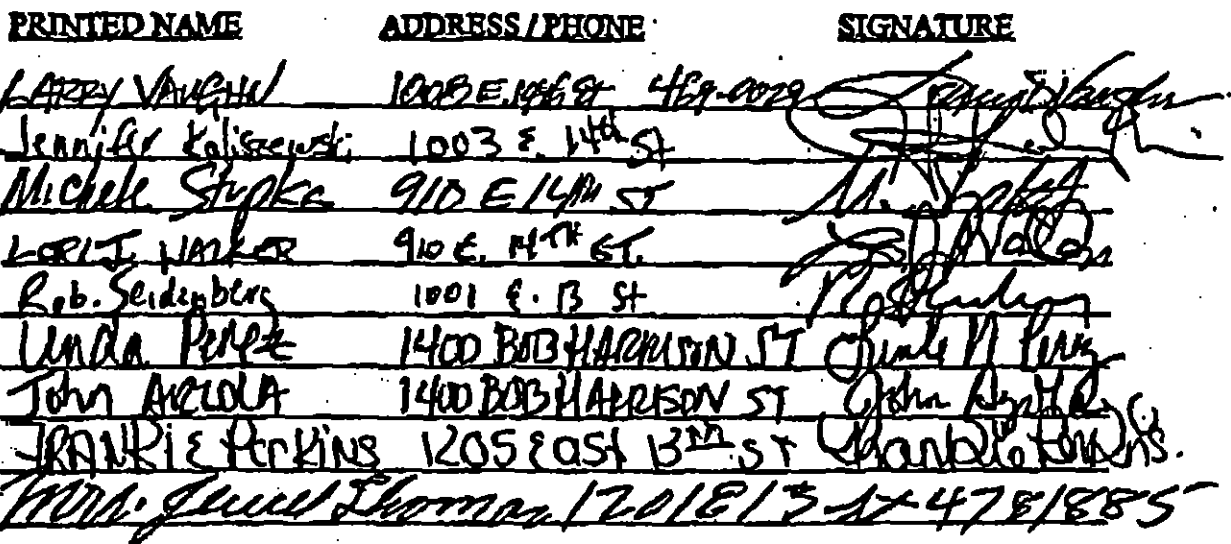 PRINTED NAME ADDRESS / PHONE SIGNATURE
LARRY VAUGHN 1008 E. 469-0029 Larry Vaughn
Jennifer Kaliszewski 1003 E. 14th St
Michele Stypka 910 E 14th ST M. Stypka
LORI J. WALKER 910 E. 14TH ST.
Rob. Seidenberg 1001 E. 13 St
Linda Perez 1400 BOB HARRISON ST Linda N Perez
John ARZOLA 1400 BOB HARRISON ST John
FRANKIE PerKiNS 1205 East 13th ST Frankie Perkins.
Mrs. Jewel Thomas 1201 E 13 St 4781885